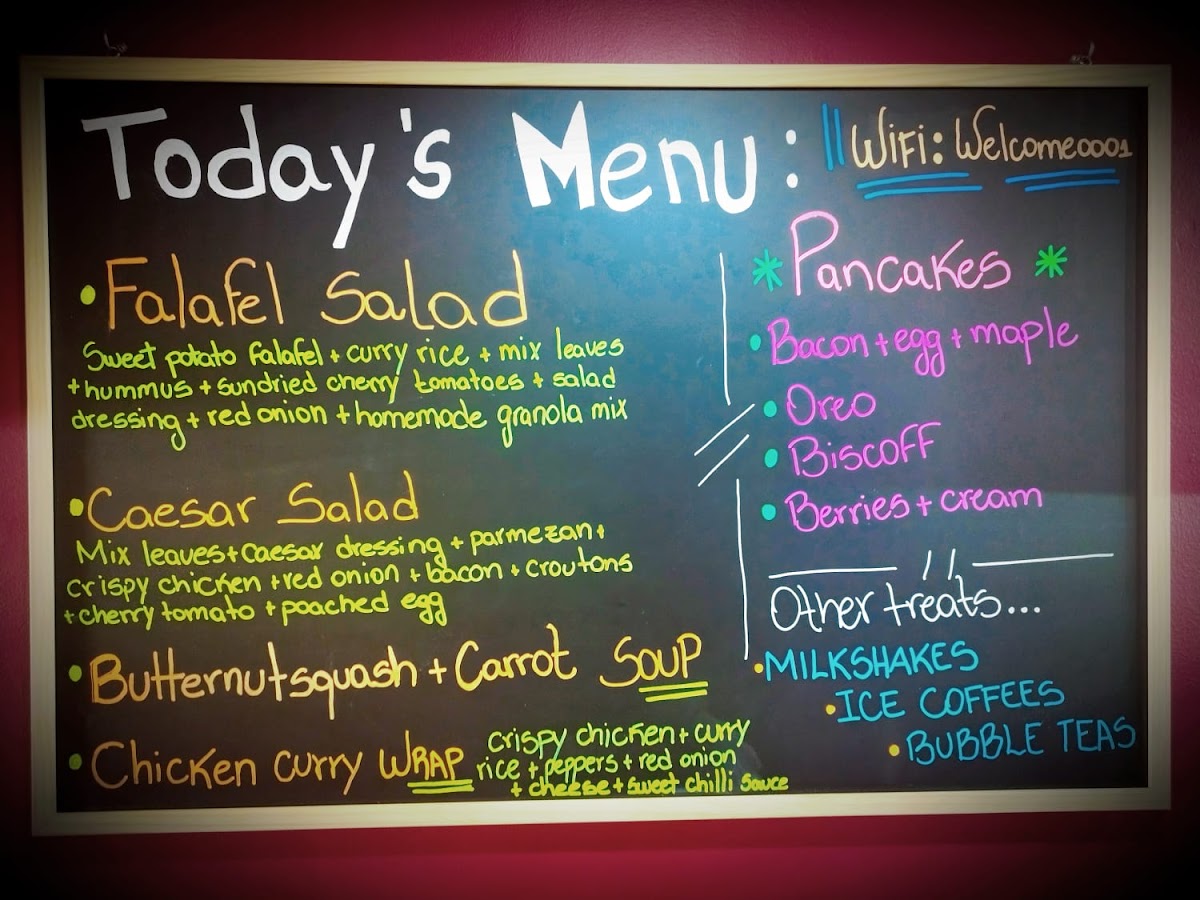 Today's Menu:
WiFi: Welcome0001
• Falafel Salad
Sweet potato falafel + curry rice + mix leaves
+ hummus + sundried cherry tomatoes + salad
dressing + red onion + homemade granola mix
• Caesar Salad
Mix leaves + Caesar dressing + parmezan +
crispy chicken + red onion + bacon + croutons
+ cherry tomato + poached egg
• Butternutsquash + Carrot SOUP
• Chicken curry WRAP
crispy chicken + curry
rice + peppers + red onion
+ cheese + sweet chilli sauce
* Pancakes *
• Bacon + egg + maple
• Oreo
• Biscoff
• Berries + cream
Other treats...
• MILKSHAKES
• ICE COFFEES
• BUBBLE TEAS